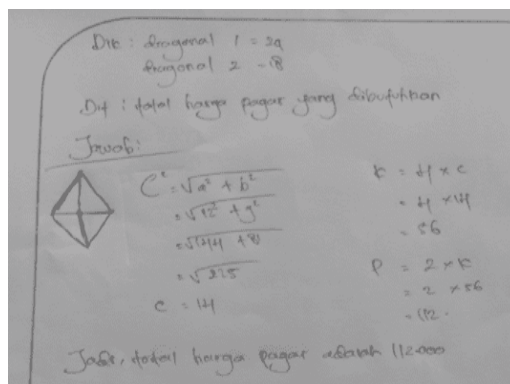 Dik : diagonal 1 = 24
diagonal 2 = 18
Dit : total harga pagar yang dibutuhkan
Jawab:
C² = √a² + b²
= √12² + 9²
= √144 + 81
= √225
C = 14
K = 4 x c
= 4 x 14
= 56
P = 2 x K
= 2 x 56
= 112.
Jadi, total harga pagar adalah 112.000